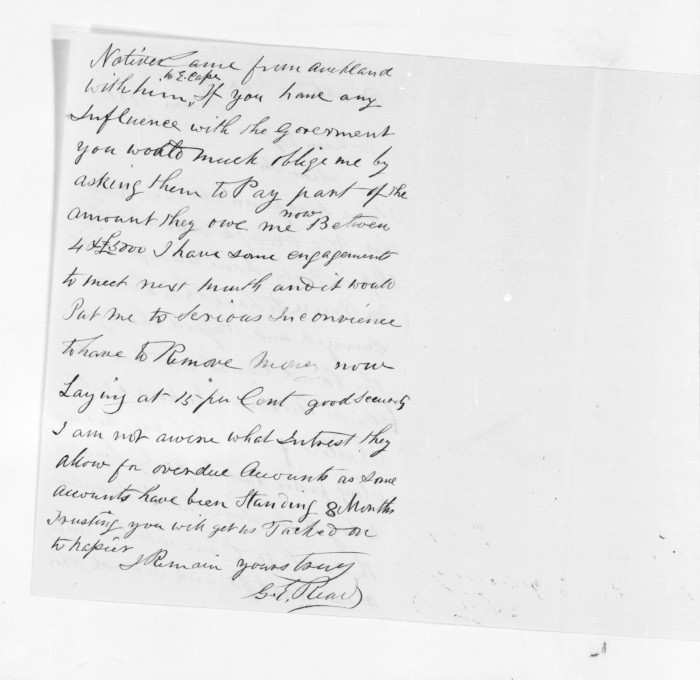 Natives Came from Auckland
to E. Cape
with him, If you have any
Influence with the Goverment
you would much oblige me by
asking them to Pay part of the
amount they owe me now Between
4 & £5000 I have some engagements
to meet next month and it would
Put me to Serious Inconvience
to have to Remove Money now
Laying at 15 per Cent good security
I am not aware what Intrest they
allow for overdue Accounts as some
accounts have been Standing 8 Months
Trusting you will get us Tacked on
to Napier
I Remain yours truly
G. E. Read